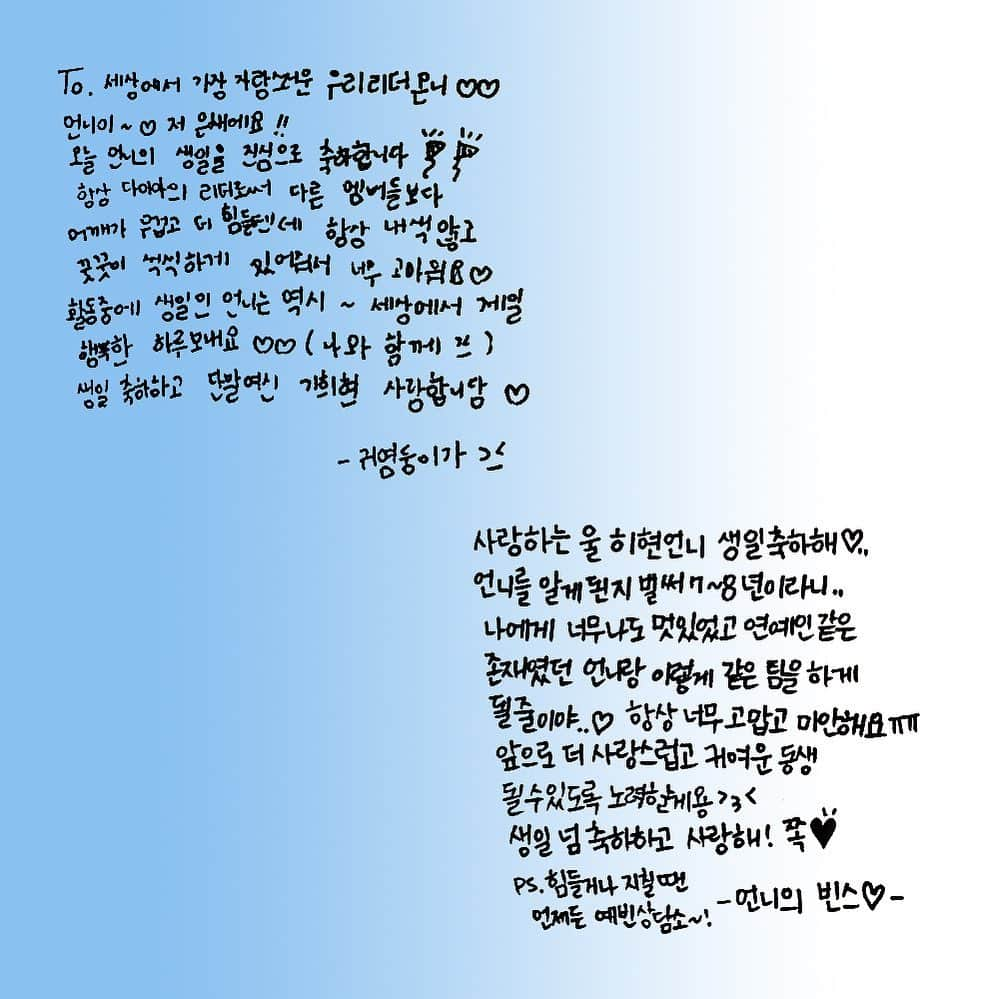 To. 세상에서 가장 자랑스러운 우리리더온니 ♡♡
언니이~ ♡ 저 은채에요 !!
오늘 언니의 생일을 진심으로 축하합니다
항상 다이아의 리더로써 다른 멤버들보다
어깨가 무겁고 더 힘들텐데 항상 내색않고
꿋꿋이 씩씩하게 있어줘서 너무 고마워요♡
활동중에 생일인 언니는 역시 ~ 세상에서 제일
행복한 하루보내요 ♡♡ ( 나와 함께 )
생일 축하하고 단발여신 기희현 사랑합니담 ♡
- 귀염둥이가
사랑하는 울 히현언니 생일축하해♡..
언니를 알게된지 벌써 7~8년이라니..
나에게 너무나도 멋있었고 연예인같은
존재였던 언니랑 이렇게 같은 팀을 하게
될줄이야..♡ 항상 너무 고맙고 미안해요ㅠㅠ
앞으로 더 사랑스럽고 귀여운 동생
될수있도록 노력할게용 >3<
생일 넘 축하하고 사랑해! 쪽♥
PS. 힘들거나 지칠땐
언제든 예빈상담소~!
-언니의 빈스♡-